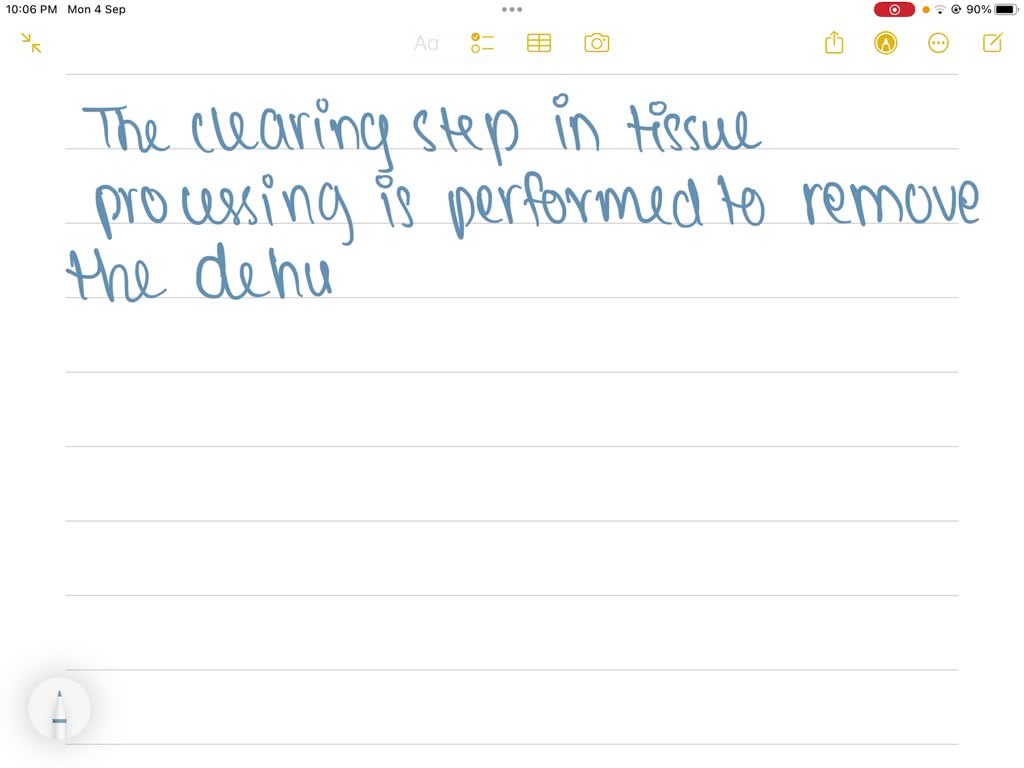 10:06 PM Mon 4 Sep 90%
Aa
The clearing step in tissue
processing is performed to remove
the dehu